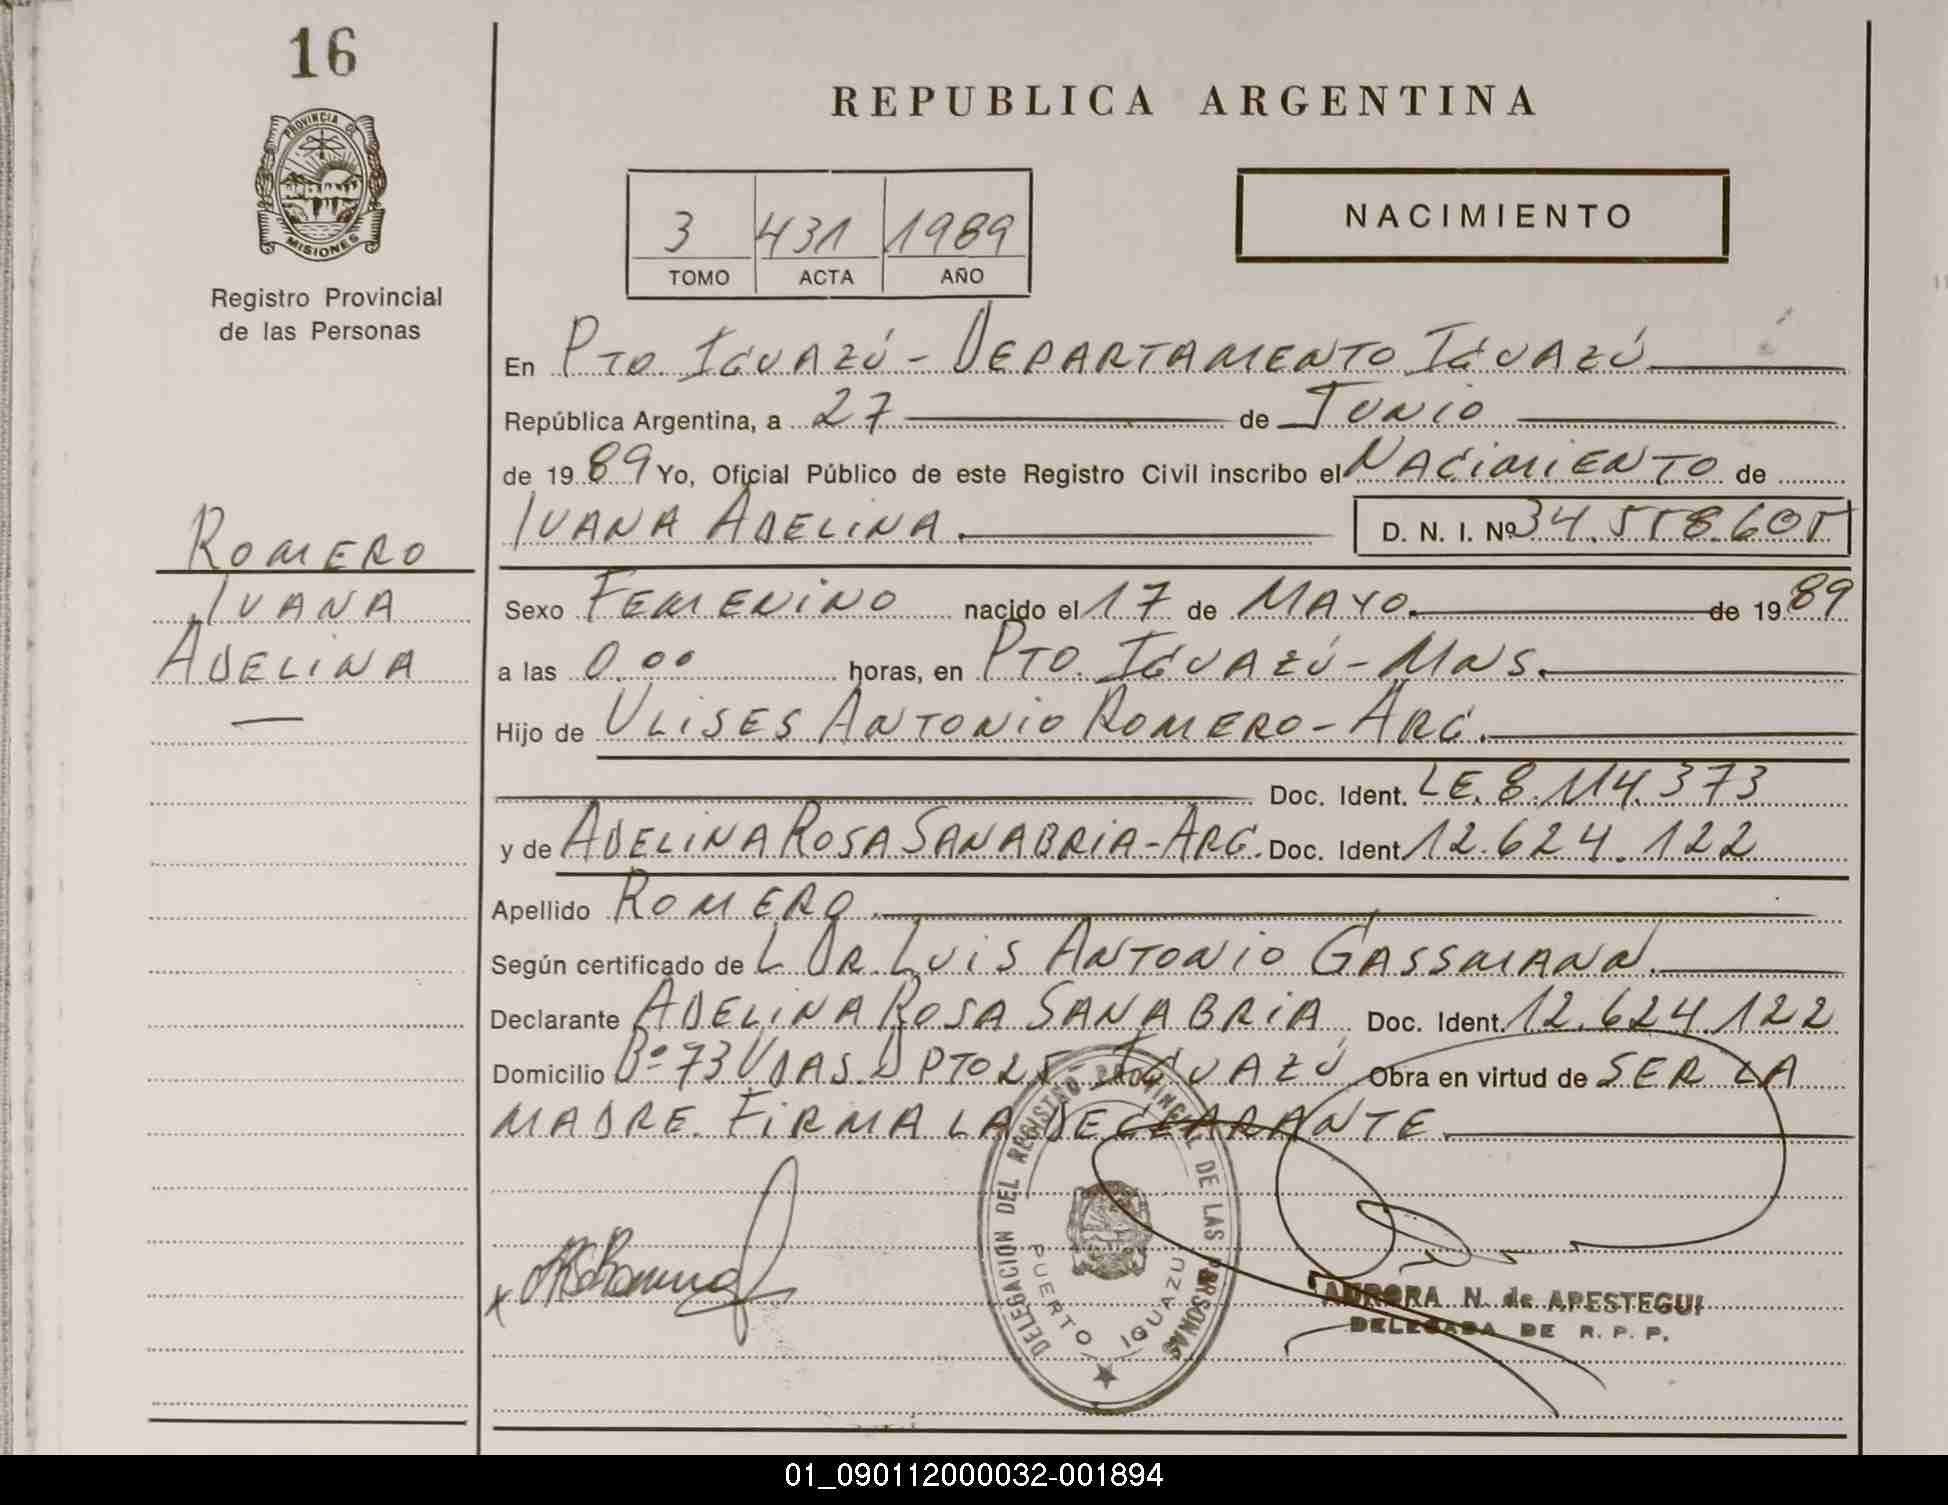 16
PROVINCIA DE
MISIONES
Registro Provincial
de las Personas
ROMERO
IVANA
ADELINA
REPUBLICA ARGENTINA
3 431 1989
TOMO ACTA AÑO
NACIMIENTO
En PTO. IGUAZÚ - DEPARTAMENTO IGUAZÚ
República Argentina, a 27 de JUNIO
de 19 89 Yo, Oficial Público de este Registro Civil inscribo el NACIMIENTO de
IVANA ADELINA. D. N. I. Nº 34.558.605
Sexo FEMENINO nacido el 17 de MAYO. de 19 89
a las 0.00 horas, en PTO. IGUAZÚ - MNS.
Hijo de ULISES ANTONIO ROMERO - ARG.
Doc. Ident. LE. 8.114.373
y de ADELINA ROSA SANABRIA - ARG. Doc. Ident. 12.624.122
Apellido ROMERO.
Según certificado de L DR. LUIS ANTONIO GASSMANN.
Declarante ADELINA ROSA SANABRIA Doc. Ident. 12.624.122
Domicilio Bº 73 VDAS. DPTO 25 - IGUAZÚ Obra en virtud de SER LA
MADRE. FIRMA LA DECLARANTE.
DELEGACION DEL REGISTRO PROVINCIAL DE LAS PERSONAS
PUERTO IGUAZU
AURORA N. de APESTEGUI
DELEGADA DE R. P. P.
01_090112000032-001894